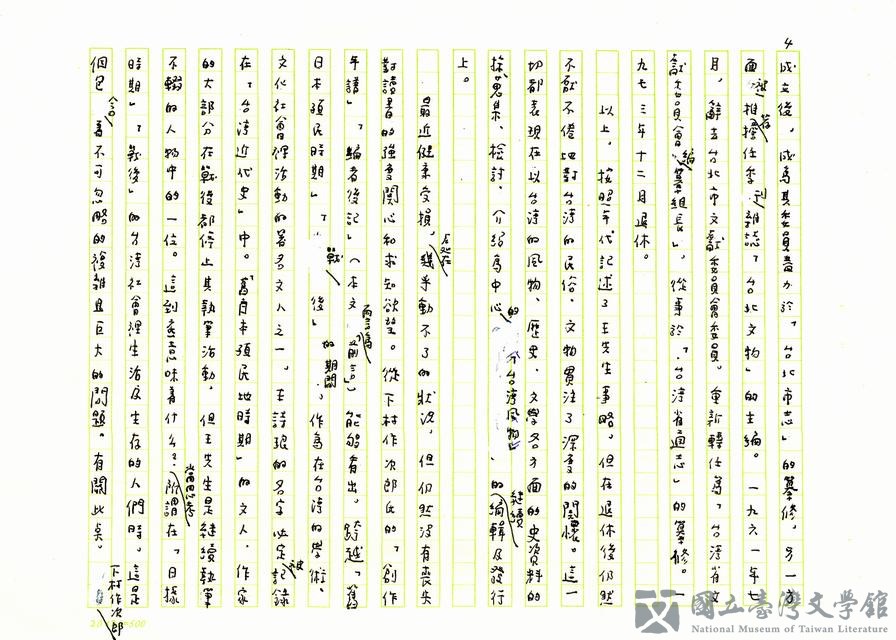 4
成立後，成為其委員盡力於「台北市志」的纂修，另一方
面，被推薦擔任季刊雜誌「台北文物」的主編。一九六一年七
月，辭去台北市文獻委員會委員。重新轉任為「台灣省文
獻委員會編纂組長」，從事於「台灣省通志」的纂修。一
九七三年十二月退休。
以上，按照年代記述了王先生事略。但在退休後仍然
不厭不倦地對台灣的民俗、文物貫注了深度的關懷。這一
切都表現在以台灣的風物、歷史、文學各方面的史資料的
採蒐集、檢討、介紹為中心的「台灣風物」的繼續編輯及發行
上。
最近健康受損，幾乎動不了的狀況，但仍然沒有喪失
對讀書的強度關心和求知欲望。從下村作次郎氏的「創作
年譜」、「編者後記」（本文「前言」）能夠看出。跨越「舊
日本殖民時期」、「戰後」的期間，作為在台灣的學術、
文化社會裡活動的著名文人之一。王詩琅的名字必定被記錄
在「台灣近代史」中。「舊日本殖民地時期」的文人、作家
的大部分在戰後都停止其執筆活動，但王先生是繼續執筆
不輟的人物中的一位。這到底意味著什麼？當思考所謂在「日據
時期」「戰後」的台灣社會裡生活及生存的人們時。這是
個包含為不可忽略的複雜且巨大的問題。有關此點。下村作次郎
20 500
國立臺灣文學館
National Museum of Taiwan Literature